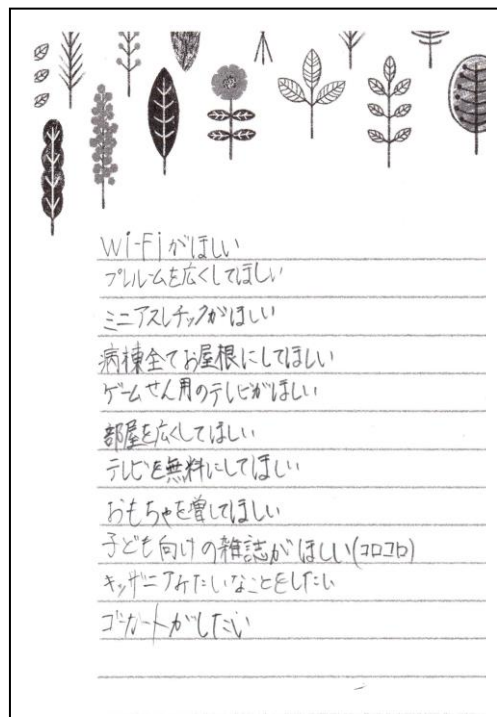 Wi-Fiがほしい
プレルームを広くしてほしい
ミニアスレチックがほしい
病棟全てお屋根にしてほしい
ゲームせん用のテレビがほしい
部屋を広くしてほしい
テレビを無料にしてほしい
おもちゃを増してほしい
子ども向けの雑誌がほしい(コロコロ)
キッザニアみたいなことをしたい
ゴーカートがしたい